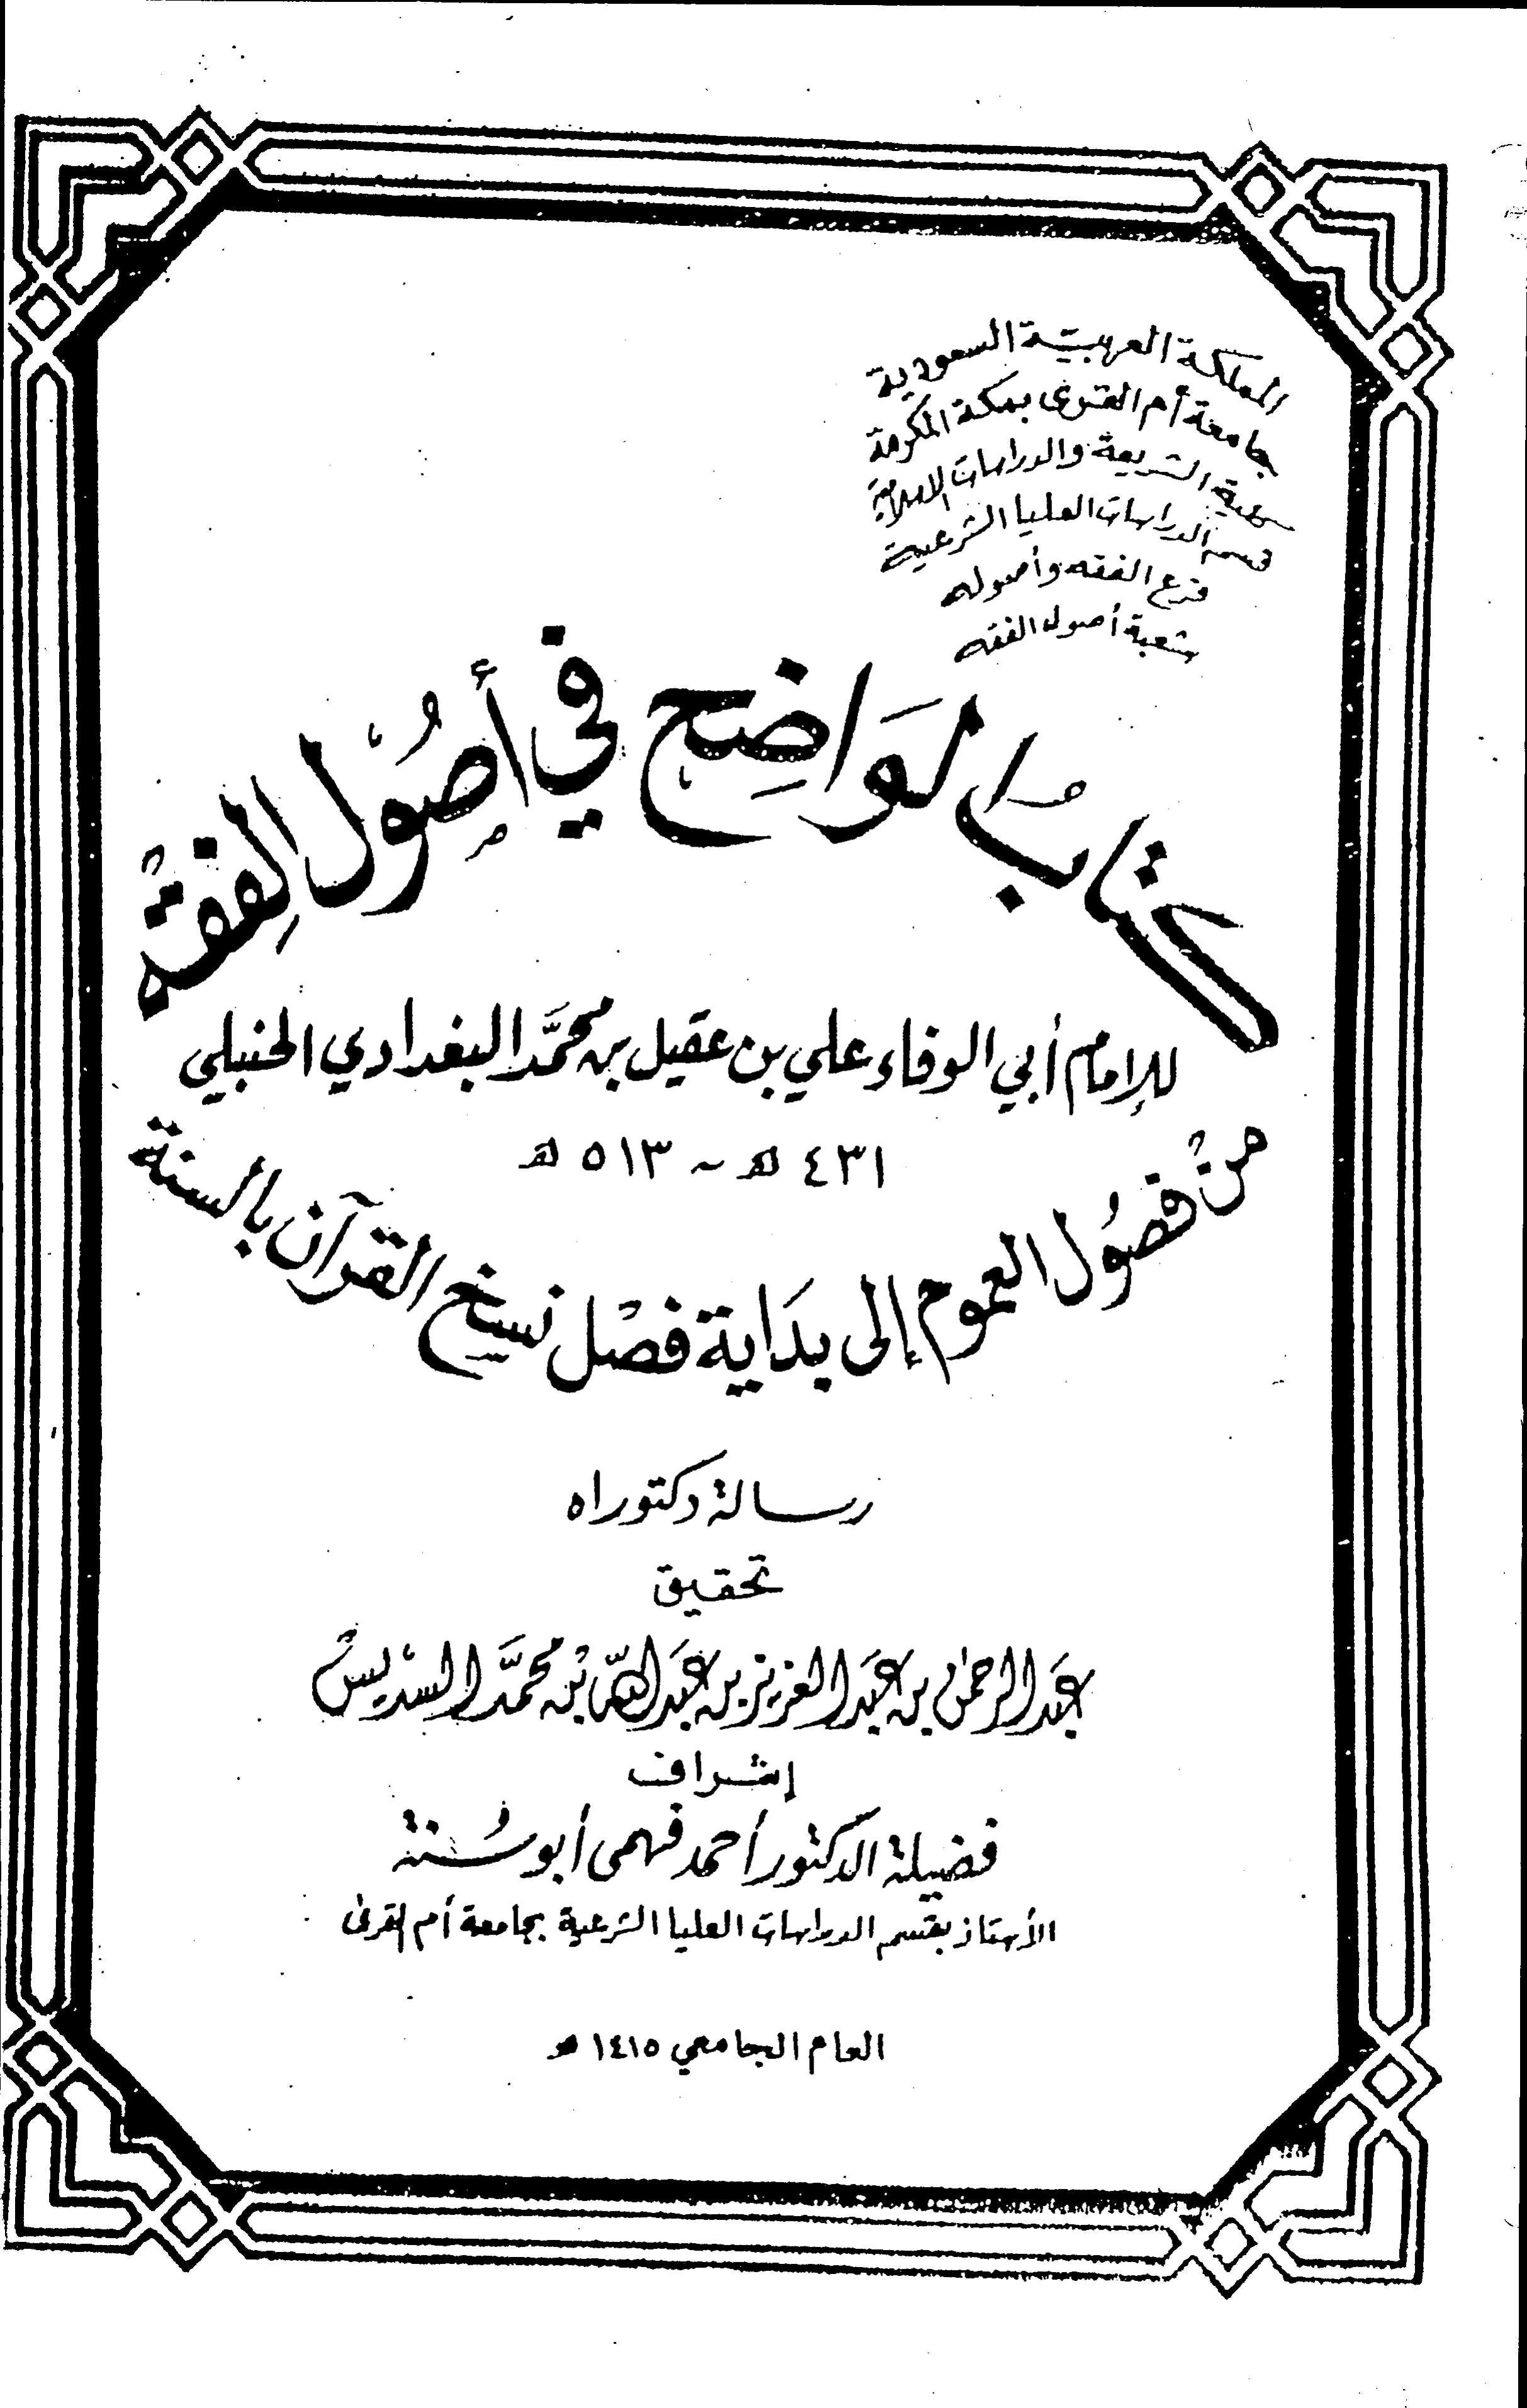 المملكة العربية السعودية
جامعة أم القرى بمكة المكرمة
كلية الشريعة والدراسات الإسلامية
قسم الدراسات العليا الشرعية
فرع الفقه وأصوله
شعبة أصول الفقه
كتابُ الوَاضِح في أُصُول الفِقْه
للإمام أبي الوفاء علي بن عقيل بن محمَّد البغدادي الحنبلي
٤٣١ هـ ~ ٥١٣ هـ
منْ فصُول العموم إلى بدَاية فصْل نسخ القرآن بالسنة
رسالة دكتوراه
تحقيق
عبَد الرحمٰن بن عبَد العزيز بن عبَد اللّه بْن محمَّد السّديسْ
إشراف
فضيلة الدكتور أحمد فهمى أبو سُنة
الأستاذ بقسم الدراسات العليا الشرعية بجامعة أم القرىٰ
العام الجامعي ١٤١٥ هـ